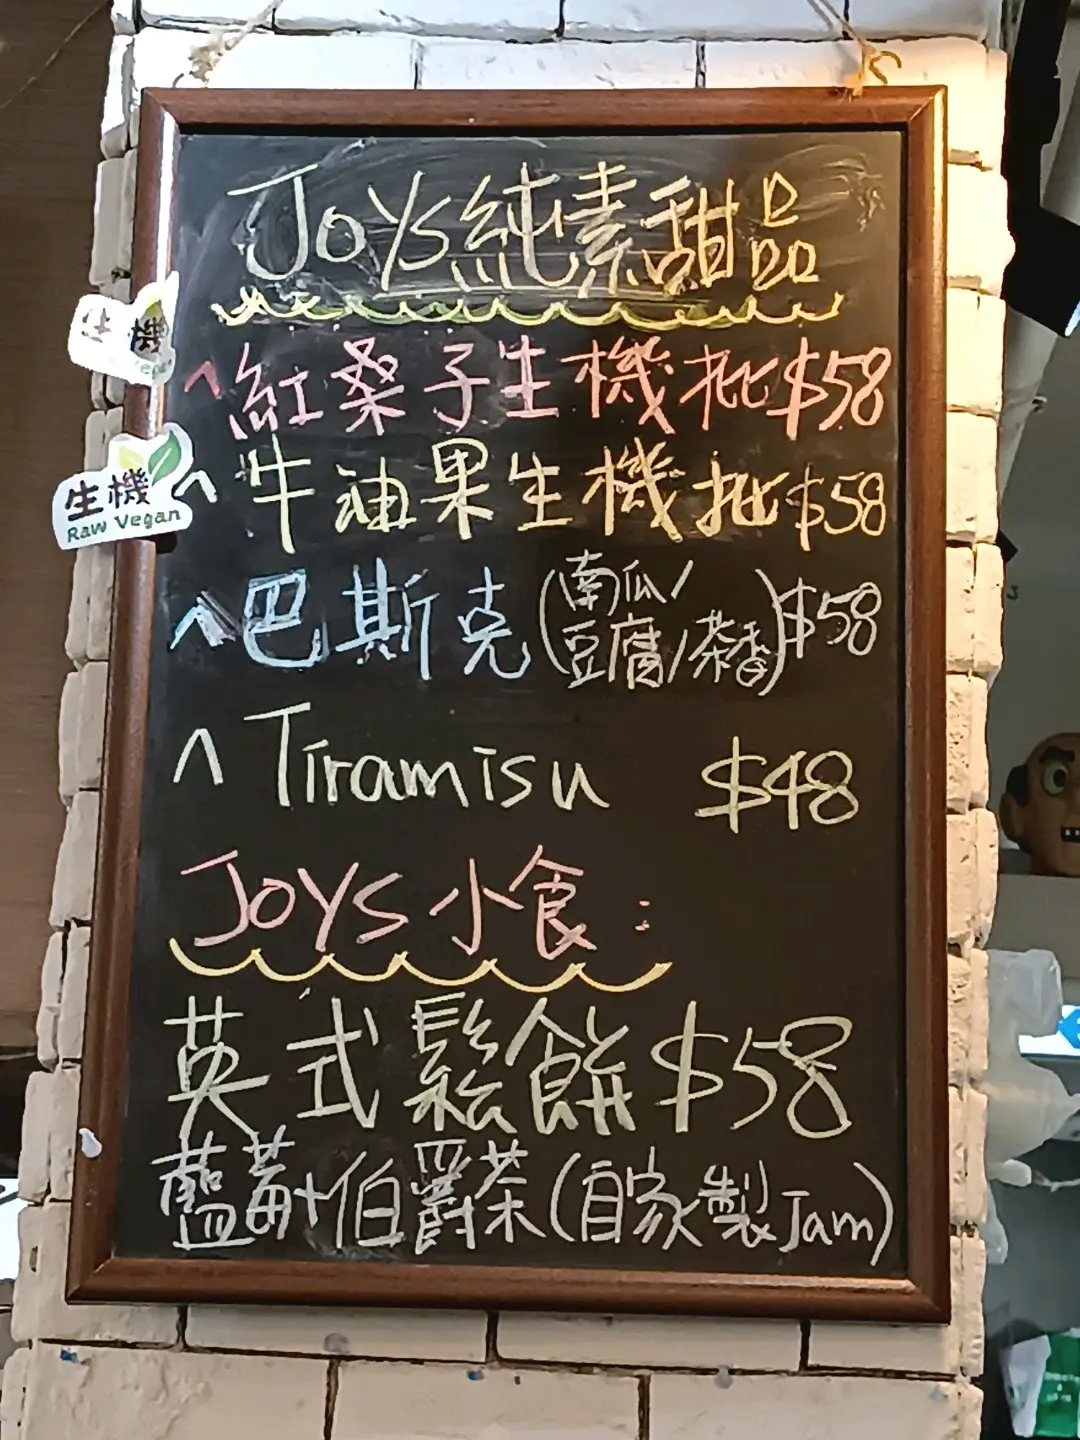 Joys純素甜品
^紅桑子生機批$58
生機
生機
Raw Vegan
^牛油果生機批$58
^巴斯克(南瓜/豆腐/茶香)$58
^Tiramisu $48
Joys小食:
英式鬆餅$58
藍莓+伯爵茶(自家製Jam)